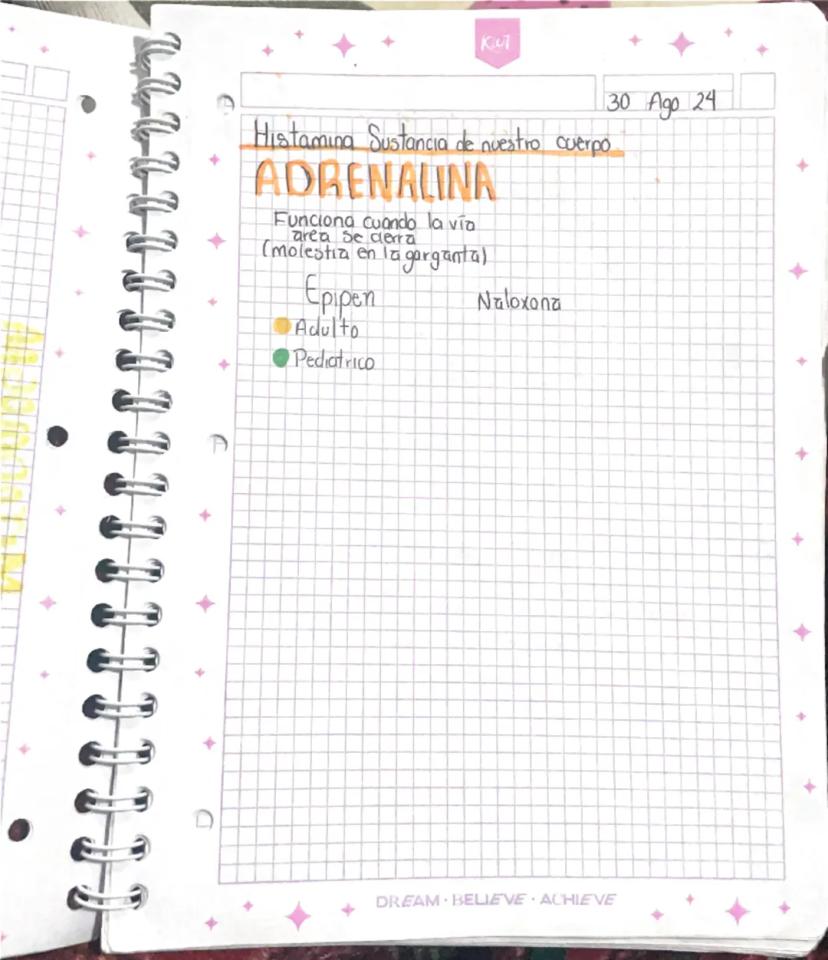 Kiut
30 Ago 24
Histamina Sustancia de nuestro cuerpo
ADRENALINA
Funciona cuando la vía
area se cierra
(molestia en la garganta)
Epipen Naloxona
Adulto
Pediatrico
DREAM · BELIEVE · ACHIEVE